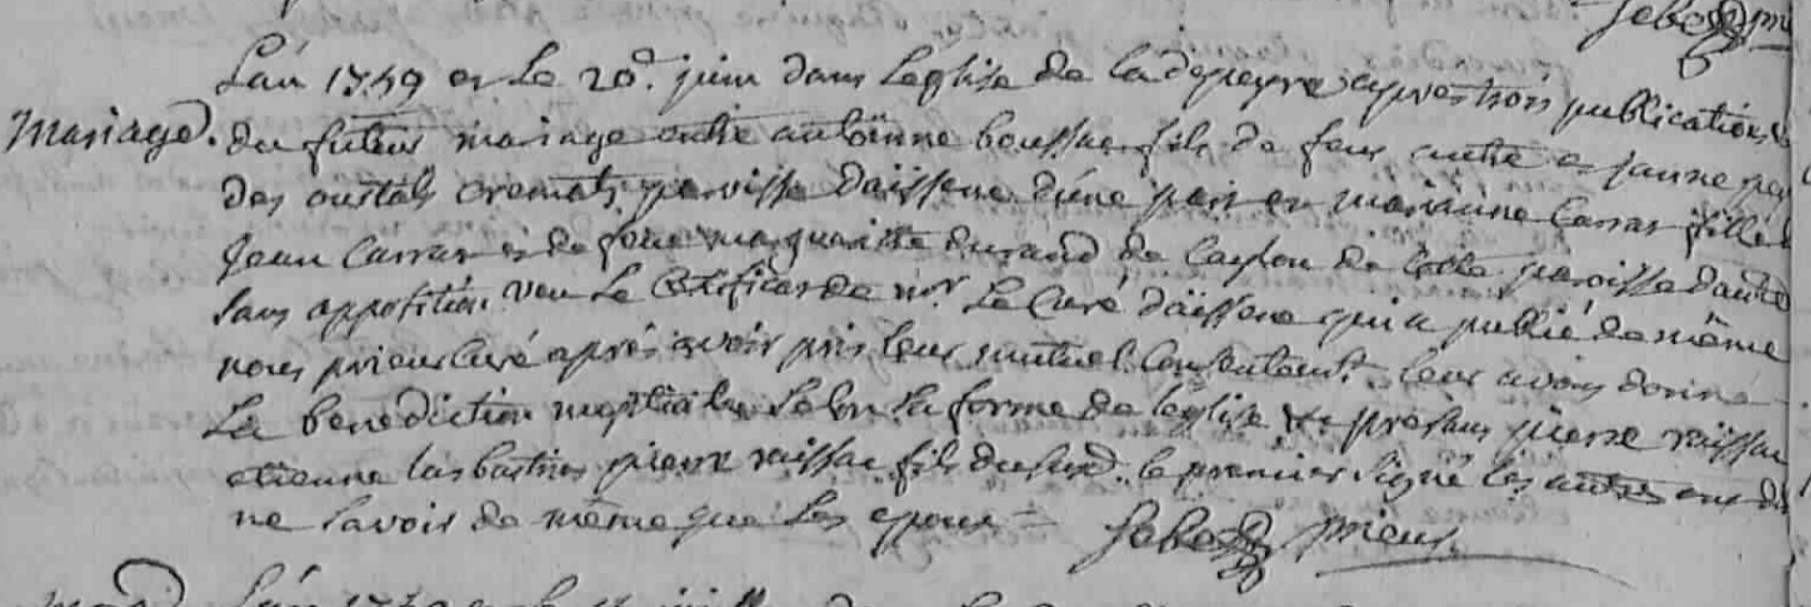 Sebe
L'an 1759 et le 20e. juin dans L'églize de Ladepeyre apres trois publications
Mariage. du futeur mariage entre antoinne boussac fils de feus autre et janne
des oustals cremats paroisse daissene d'une part et marianne Carras fille
Jean Carras et de feue marguaritte durand de Caplou de paroisse
sans oppositión veu Le Certificat de mr. Le Curé d'aissene qui a publié de même
nous prieur curé aprés avoir pris leur mutuel Consentement. leur avons donné
La benediction nuptialle selon la forme de léglize presans pierre raissac
etienne lasbastries pierre raissac fils dusurd. le premier signé les autres ont dit
ne savoir de même que les epoux = Sebe prieur